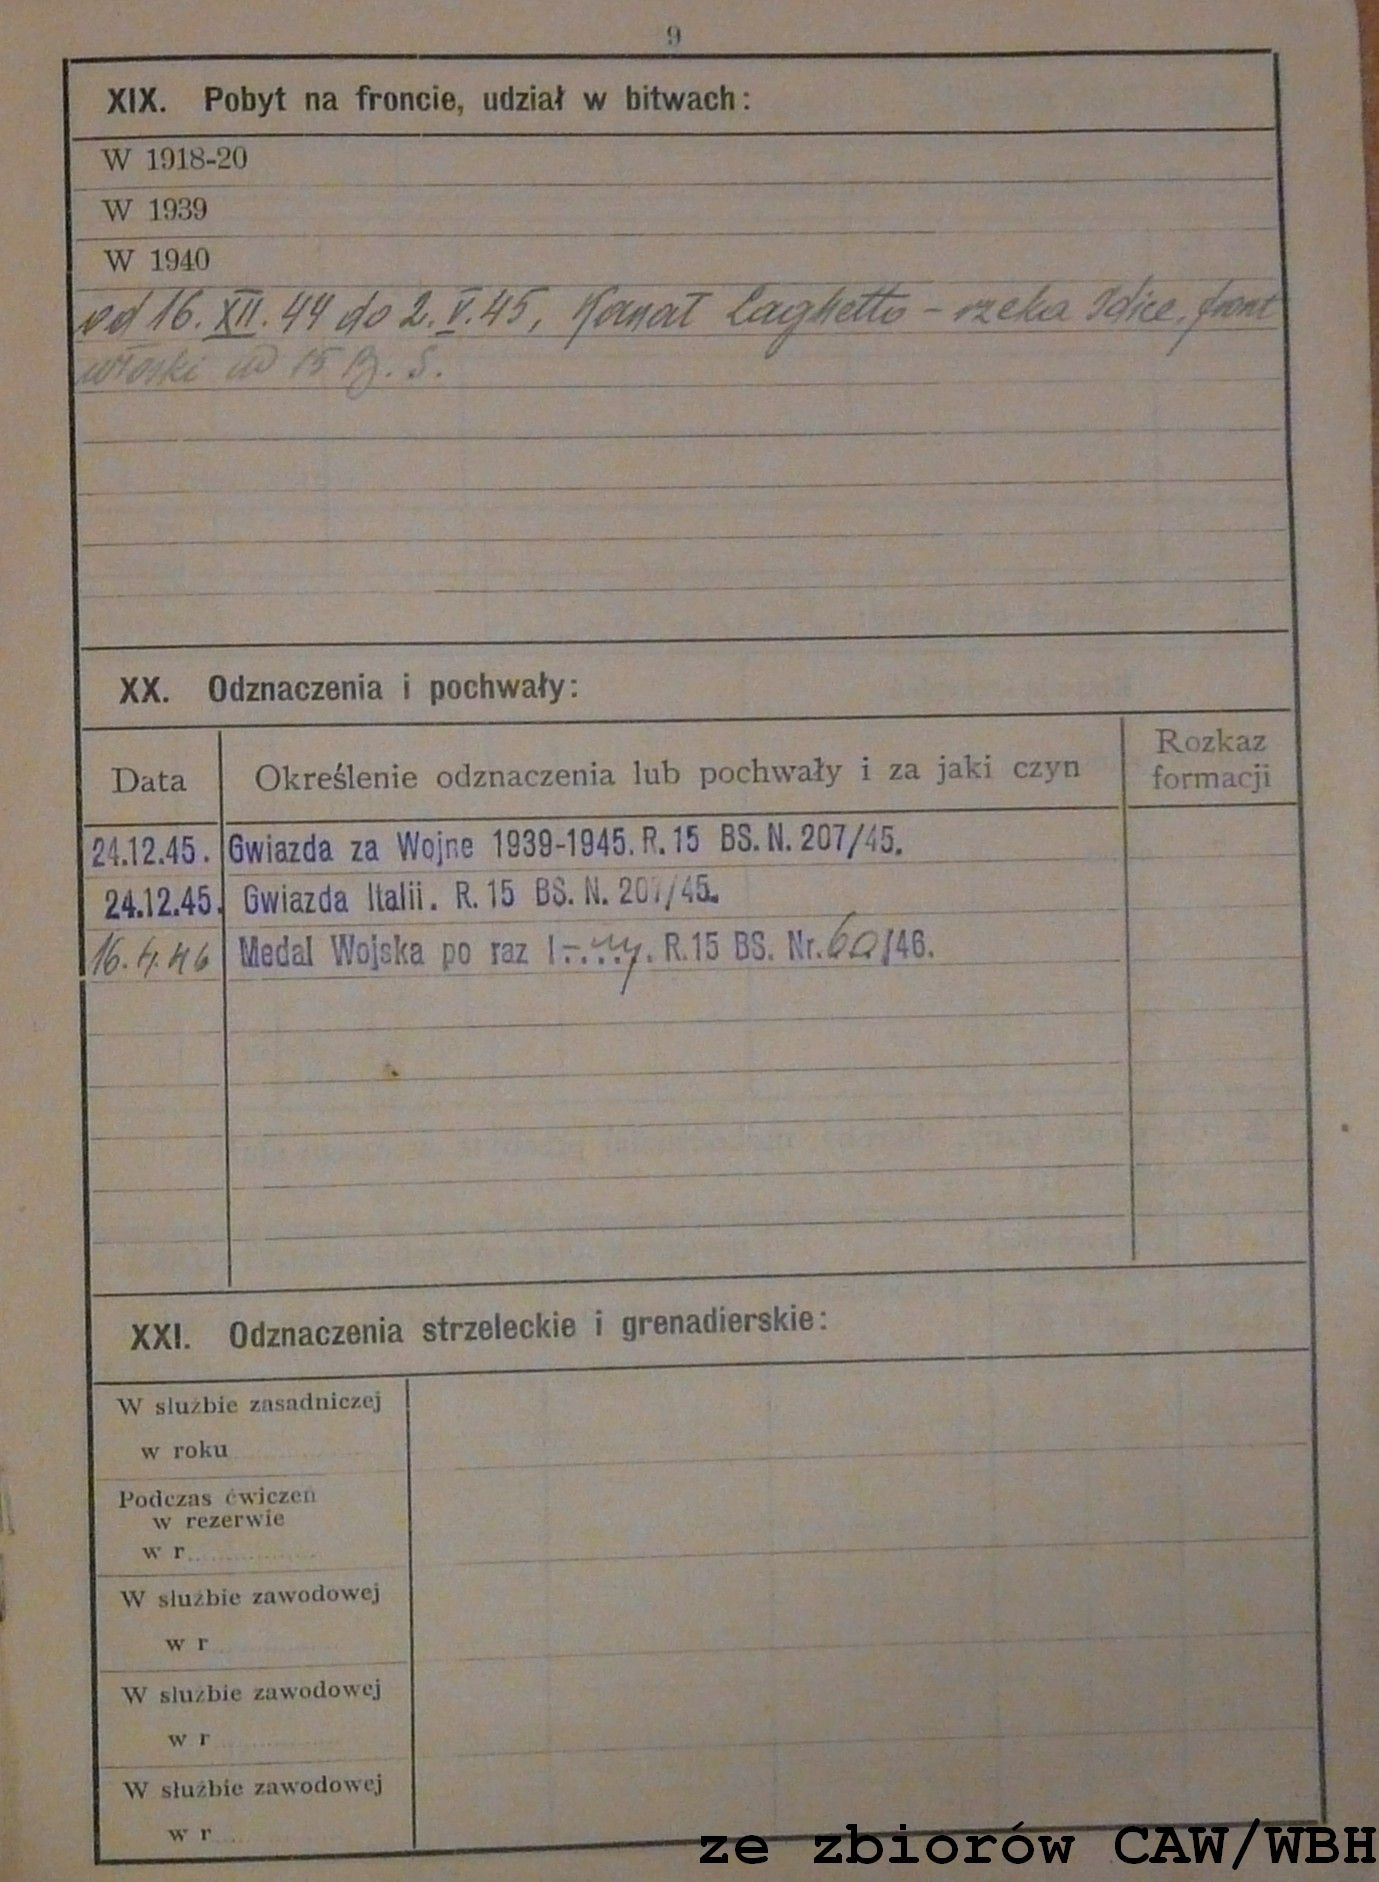 9
XIX. Pobyt na froncie, udział w bitwach:
W 1918-20
W 1939
W 1940
od 16.XII.44 do 2.V.45, Kanał Laghetto - rzeka Idice, front
włoski w 15 B. S.
XX. Odznaczenia i pochwały:
Data Określenie odznaczenia lub pochwały i za jaki czyn Rozkaz formacji
24.12.45. Gwiazda za Wojne 1939-1945. R. 15 BS. N. 207/45.
24.12.45. Gwiazda Italii. R. 15 BS. N. 207/45.
16.4.46 Medal Wojska po raz I-...y. R.15 BS. Nr. 60/46.
XXI. Odznaczenia strzeleckie i grenadierskie:
W służbie zasadniczej
w roku
Podczas ćwiczeń
w rezerwie
w r
W służbie zawodowej
w r
W służbie zawodowej
w r
W służbie zawodowej
w r
ze zbiorów CAW/WBH